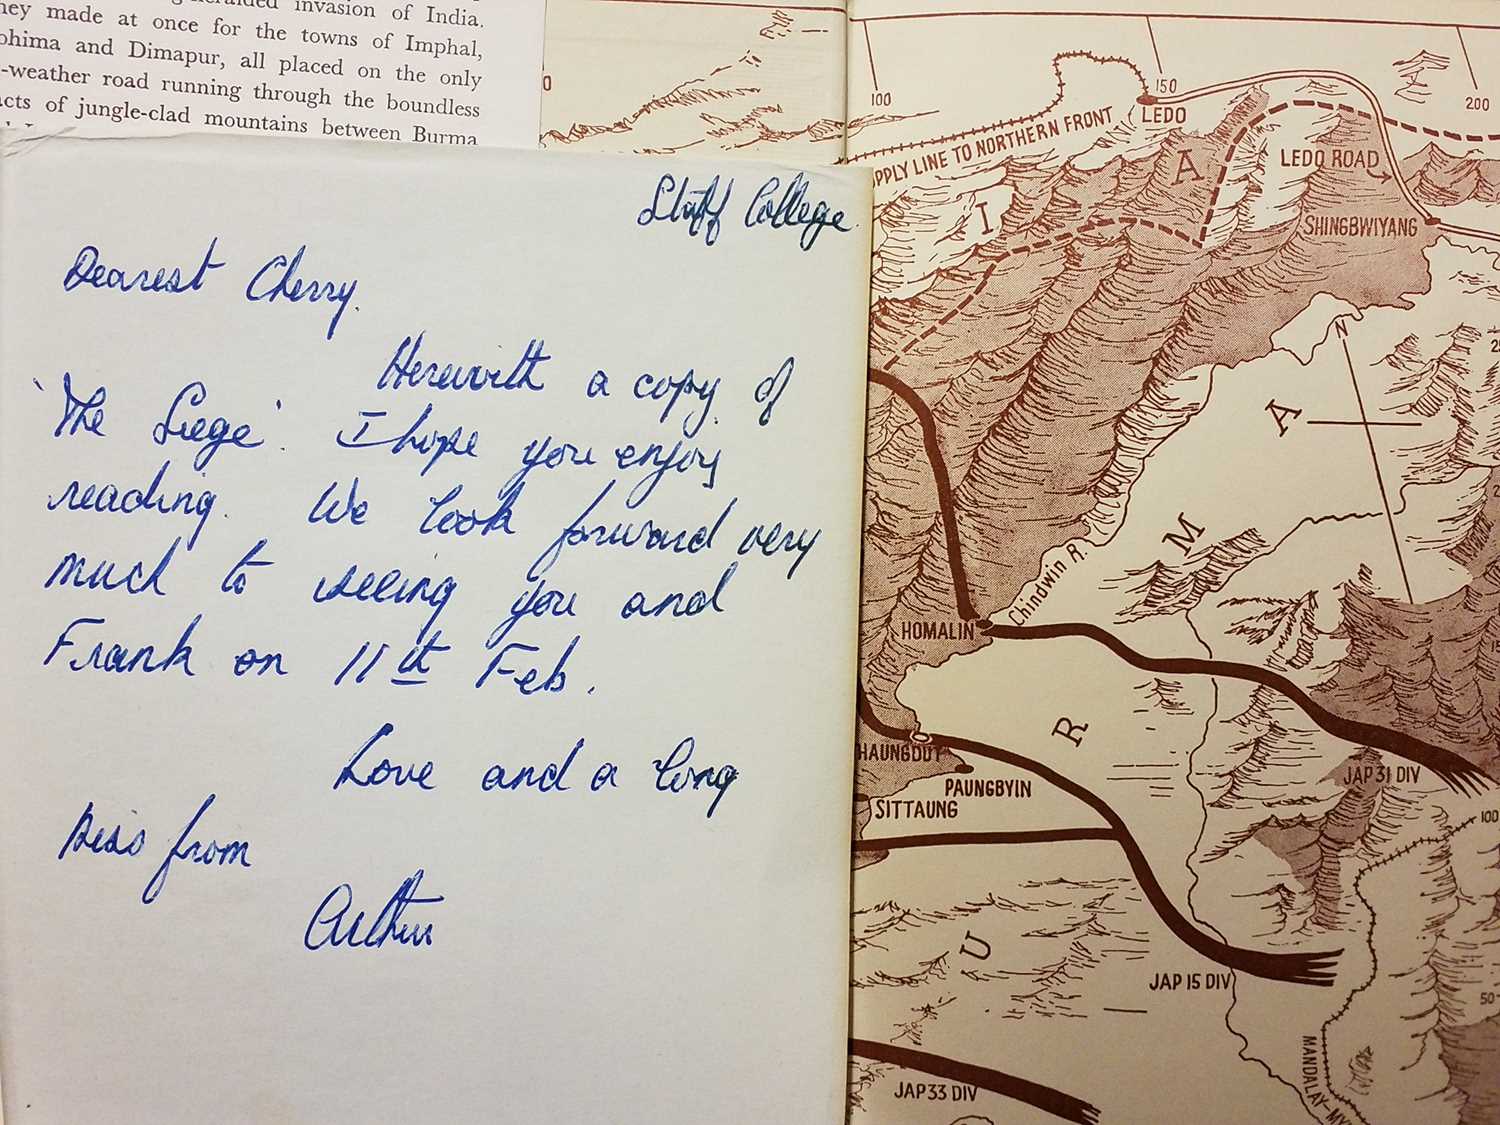 invasion of India.
they made at once for the towns of Imphal,
ohima and Dimapur, all placed on the only
-weather road running through the boundless
acts of jungle-clad mountains between Burma
Staff College
Dearest Cherry.
Herewith a copy of
'The Siege'. I hope you enjoy
reading. We look forward very
much to seeing you and
Frank on 11th Feb.
Love and a long
kiss from
Arthur
0
100
150
200
LEDO
PPLY LINE TO NORTHERN FRONT
LEDO ROAD
I A
SHINGBWIYANG
N
A
M
Chindwin R.
HOMALIN
R
HAUNGDUT
PAUNGBYIN
SITTAUNG
JAP 31 DIV
100
U
JAP 15 DIV
50
MANDALAY-MY
JAP 33 DIV